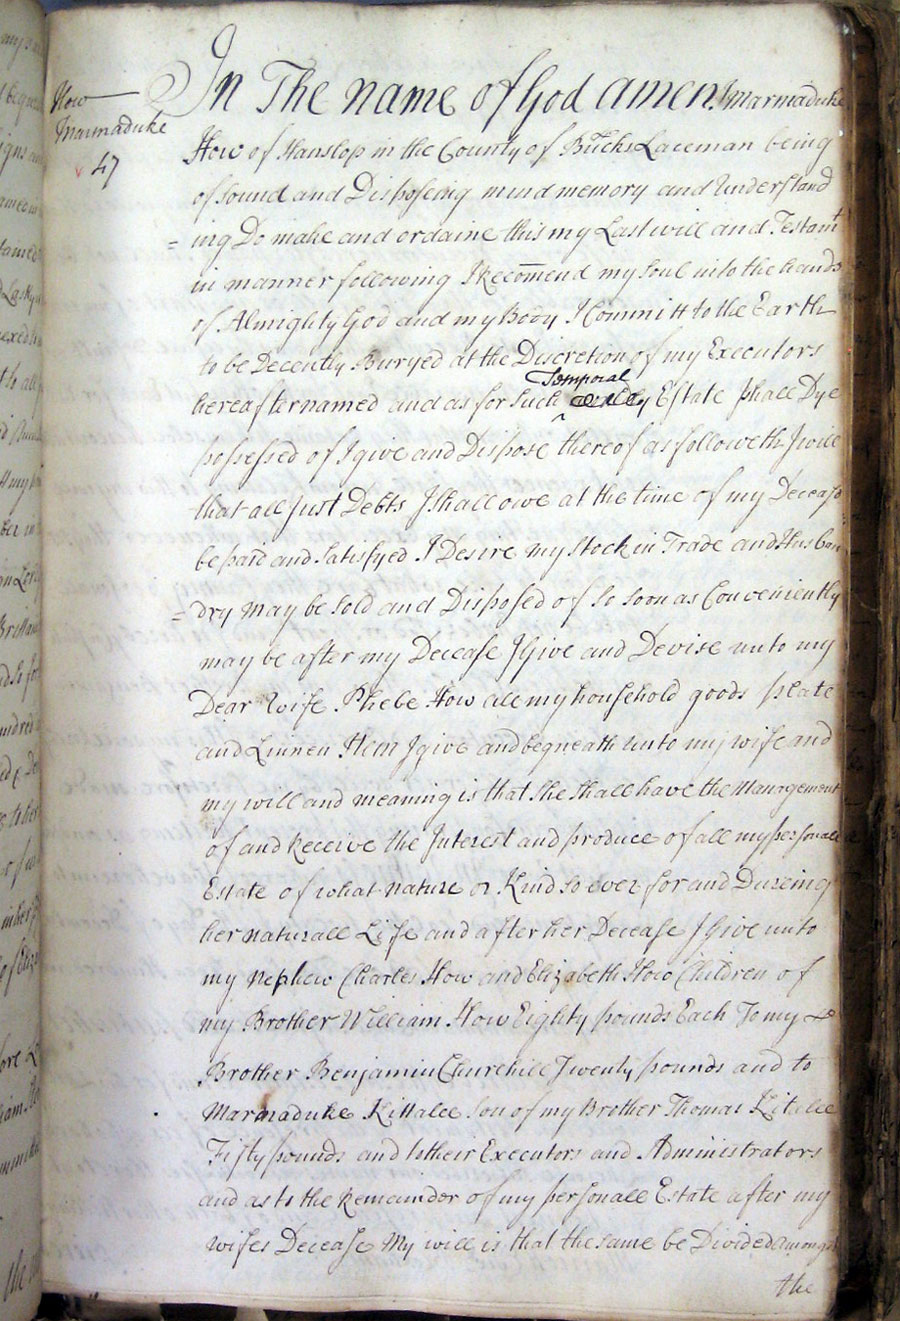 How
Marmaduke
47
In The name of God amen. I Marmaduke
How of Hanslop in the County of Bucks Laceman being
of sound and Disposeing mind memory and Understand
= ing Do make and ordaine this my Last will and Testamt
in manner following I Recom̄end my soul into the hands
of Almighty God and my Body I Committ to the Earth
to be Decently Buryed at the Discretion of my Executors
Temporal
hereafter named and as for such Estate I shall Dye
possessed of I give and Dispose thereof as followeth I will
that all Just Debts I shall owe at the time of my Decease
be paid and Satisfyed I Desire my Stock in Trade and Husban
= dry may be sold and Disposed of so soon as Conveniently
may be after my Decease I Give and Devise unto my
Dear Wife Phebe How all my household goods plate
and Linnen Item I give and bequeath unto my wife and
my will and meaning is that she shall have the Management
of and Receive the Interest and produce of all my personall
Estate of what nature or Kind so ever for and Dureing
her naturall Life and after her Decease I Give unto
my nephew Charles How and Elizabeth How Children of
my Brother William How Eighty pounds Each To my
Brother Benjamin Churchill Twenty pounds and to
Marmaduke Kittalee son of my Brother Thomas Kitelee
Fifty pounds and to their Executors and Administrators
and as to the Remainder of my personall Estate after my
wifes Decease My will is that the same be Divided amongst
the